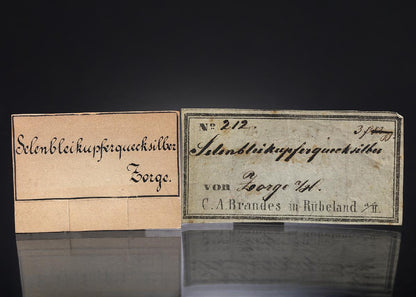 Selenbleikupferquecksilber
Zorge.
No 212.
Selenbleikupferquecksilber
von Zorge
C. A Brandes in Rübeland